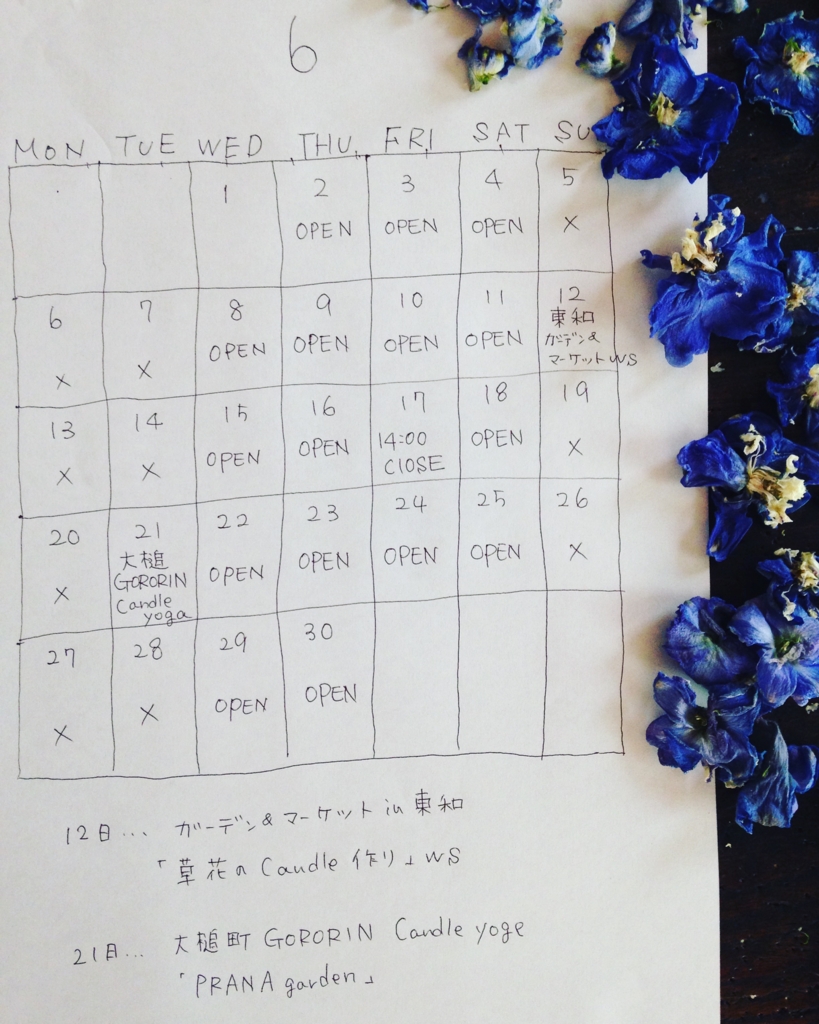 6
MON TUE WED THU FRI SAT SU
1 2 3 4 5
OPEN OPEN OPEN ×
6 7 8 9 10 11 12
× × OPEN OPEN OPEN OPEN 東和
ガーデン&
マーケットWS
13 14 15 16 17 18 19
× × OPEN OPEN 14:00 OPEN ×
ClOSE
20 21 22 23 24 25 26
× 大槌 OPEN OPEN OPEN OPEN ×
GORORIN
Candle
yoga
27 28 29 30
× × OPEN OPEN
12日... ガーデン&マーケット in 東和
「草花のCandle作り」WS
21日... 大槌町 GORORIN Candle yoge
「PRANA garden」